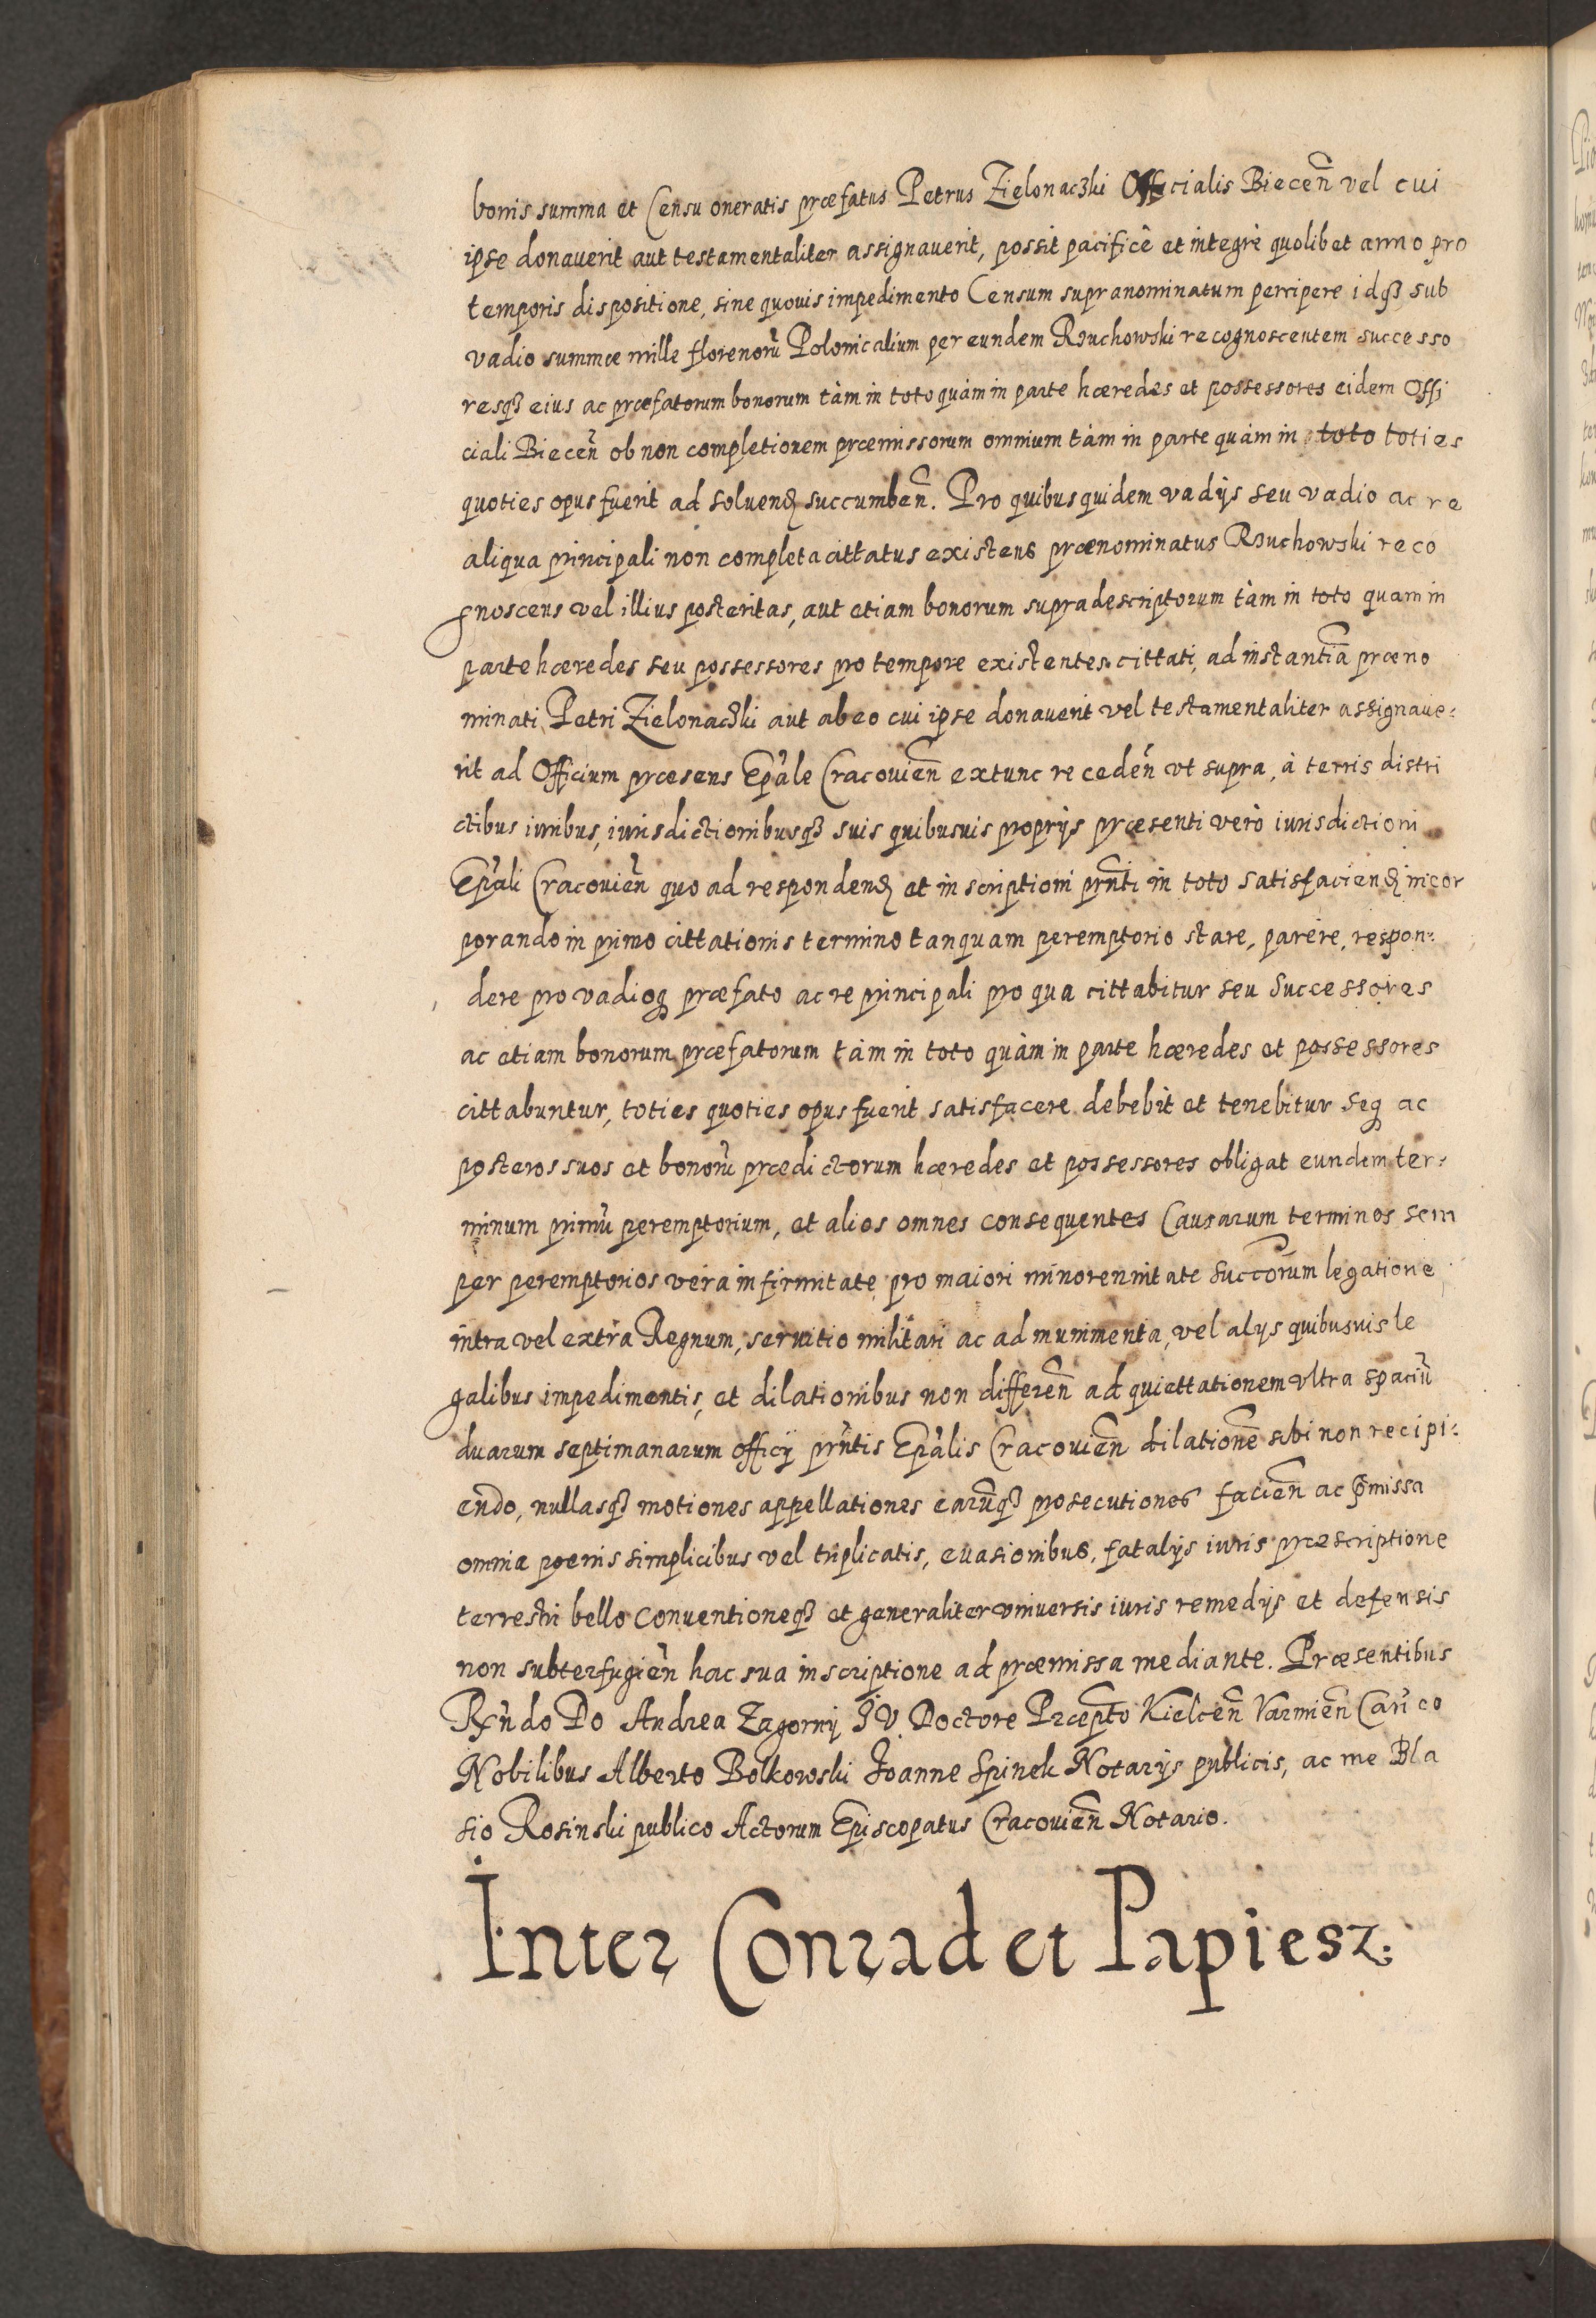 bonis summa et Censu oneratis præfatus Petrus Zielonaczki Officialis Biecen̄ vel cui
ipse donaverit aut testamentaliter assignaverit, possit pacificè et integrè quolibet anno pro
temporis dispositione, sine quovis impedimento Censum supranominatum percipere idq3 sub
vadio summæ mille florenorū Polonicalium per eundem Rouchowski recognoscentem successo
resq3 eius ac præfatorum bonorum tàm in toto quàm in parte hæredes et possessores eidem Offi
ciali Biecen̄ ob non completionem præmissorum omnium tàm in parte quàm in toto toties
quoties opus fuerit ad soluend succumben̄. Pro quibus quidem vadijs seu vadio ac re
aliqua principali non completa cittatus existens prænominatus Rouchowski reco
gnoscens vel illius posteritas, aut etiam bonorum supradescriptorum tàm in toto quam in
parte hæredes seu possessores pro tempore existentes cittati, ad instantiā præno
minati Petri Zielonaczki aut ab eo cui ipse donaverit vel testamentaliter assignave:
rit ad Officium præsens Ep̄ale Cracovien̄ extunc receden̄ vt supra, à terris distri
ctibus iuribus, iurisdictionibusq3 suis quibusvis proprijs præsenti verò iurisdictioni
Ep̄ali Cracovien̄ quo ad respondend et inscriptioni prn̄ti in toto satisfaciend incor
porando in primo cittationis termino tanquam peremptorio stare, parere, respon:
dere pro vadioq præfato ac re principali pro qua cittabitur seu Successores
ac etiam bonorum præfatorum tàm in toto quàm in parte hæredes et possessores
cittabuntur, toties quoties opus fuerit satisfacere debebit et tenebitur seq ac
posteros suos et bonorū prædictorum hæredes et possessores obligat eundem ter:
minum primū peremptorium, et alios omnes consequentes Causarum terminos sem
per peremptorios vera infirmitate pro maiori minorennitate succorum legatione
intra vel extra Regnum, servitio militari ac ad munimenta, vel alijs quibusvis le
galibus impedimentis, et dilationibus non differen̄ ad quiettationem vltra spatiū
duarum septimanarum officij prn̄tis Ep̄alis Cracovien̄ dilationē sibi non recipi:
endo, nullasq3 motiones appellationes earūq3 prosecutiones facien̄ ac p̄missa
omnia poenis simplicibus vel triplicatis, evasionibus, fatalijs iuris præscriptione
terrestri bello conventioneq3 et generaliter vniversis iuris remedijs et defensis
non subterfugien̄ hac sua inscriptione ad præmissa mediante. Præsentibus
Rn̄do Do Andrea Zagorny I V Doctore Præpto Kielcen̄ Varmien̄ Can̄co
Nobilibus Alberto Bolkowski Ioanne Spinek Notarijs publicis, ac me Bla
sio Rosinski publico Actorum Episcopatus Cracovien̄ Notario.
Inter Conrad et Papiesz.